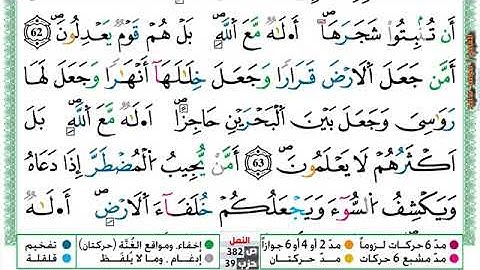 أَن تُنۢبِتُوا۟ شَجَرَهَآ ۗ أَءِلَـٰهٌ مَّعَ ٱللَّهِ ۚ بَلْ هُمْ قَوْمٌ يَعْدِلُونَ ۝٦٢
أَمَّن جَعَلَ ٱلْأَرْضَ قَرَارًا وَجَعَلَ خِلَـٰلَهَآ أَنْهَـٰرًا وَجَعَلَ لَهَا
رَوَٰسِىَ وَجَعَلَ بَيْنَ ٱلْبَحْرَيْنِ حَاجِزًا ۗ أَءِلَـٰهٌ مَّعَ ٱللَّهِ ۚ بَلْ
أَكْثَرُهُمْ لَا يَعْلَمُونَ ۝٦٣ أَمَّن يُجِيبُ ٱلْمُضْطَرَّ إِذَا دَعَاهُ
وَيَكْشِفُ ٱلسُّوٓءَ وَيَجْعَلُكُمْ خُلَفَآءَ ٱلْأَرْضِ ۗ أَءِلَـٰهٌ
مدّ 6 حركات لزوماً مدّ 2 أو 4 أو 6 جوازاً النمل ص 382 إخفاء، ومواقع الغُنَّة (حركتان) تفخيم
مدّ مشبع 6 حركات مدّ حركتان حزب 39 إدغام، وما لا يُلفَظ قلقلة